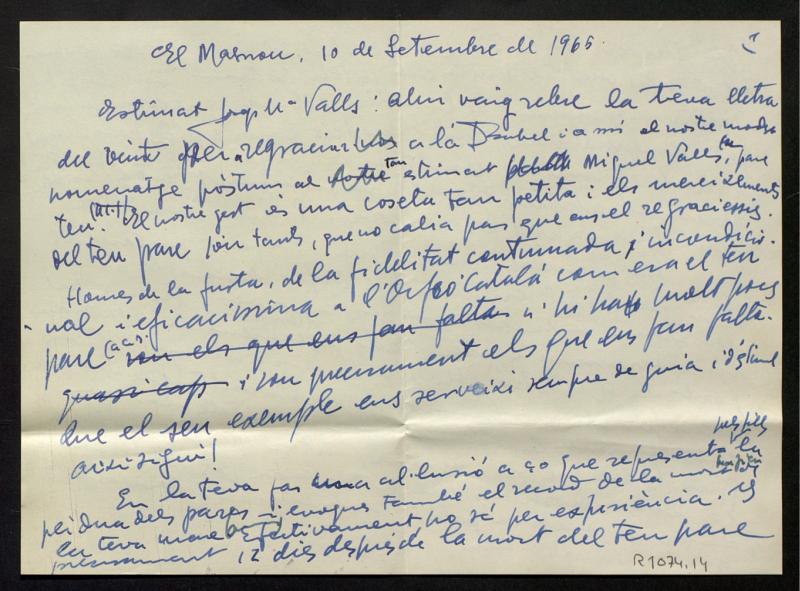 El Masnou, 10 de Setembre de 1965.
Estimat Josep Mª Valls: ahir vaig rebre la teva lletra
del vint per a regraciar a la Isabel i a mi el nostre modest
homenatge pòstum al tan estimat Miquel Valls, pare
teu. El nostre gest és una coseta tan petita i els mereixements
del teu pare són tants, que no calia pas que ens el regraciessis.
Homes de la fusta, de la fidelitat continuada i incondicio-
nal i eficacíssima a l'Orfeó Català com era el teu
pare (a.c.s.) son els que ens fan falta n'hi ha molt pocs
quasi cap i son precisament els que ens fan falta.
Que el seu exemple ens serveixi sempre de guia i d'estímul
així sigui!
En la teva fas una al·lusió a ço que representa pels fills la
pèrdua dels pares i evoques també el record de la mort de
la teva mare. Efectivament, ho sé per experiència. Is
precisament 12 dies després de la mort del teu pare
R1074.14